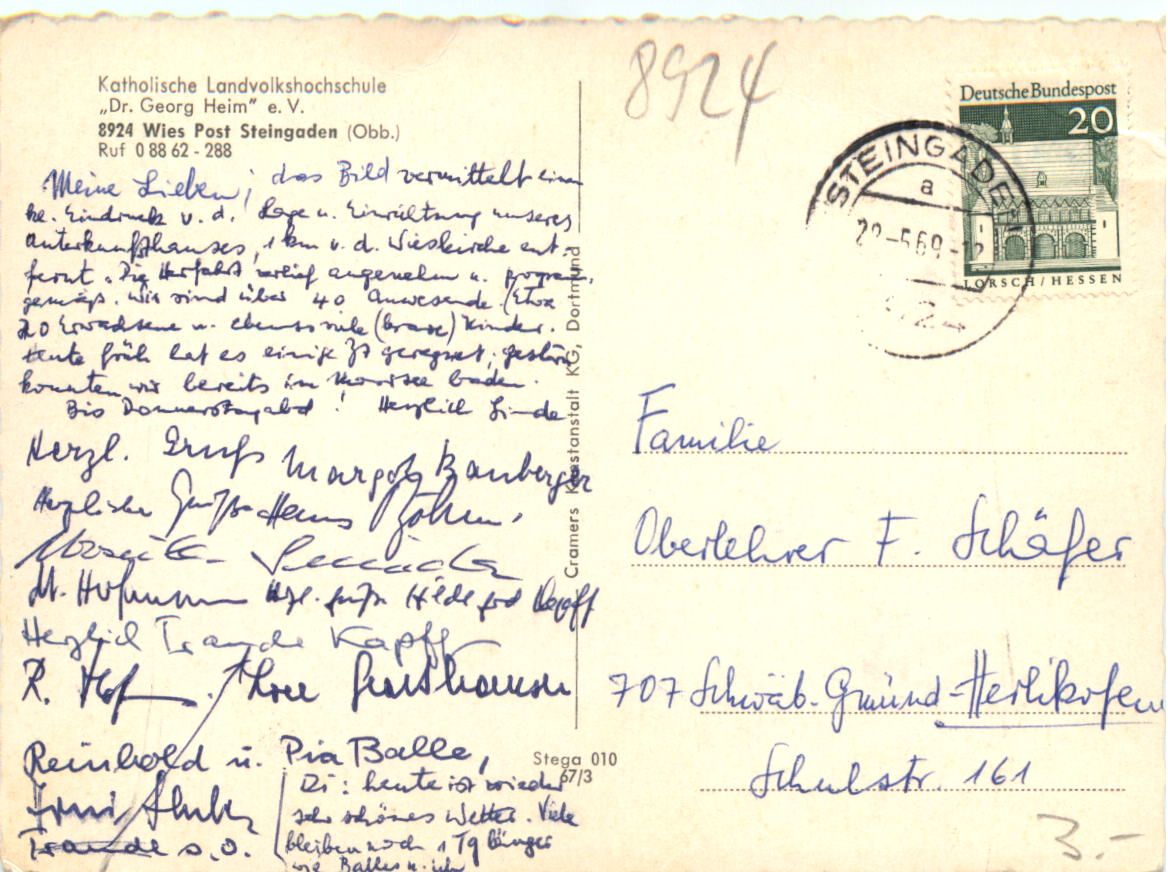 Katholische Landvolkshochschule
„Dr. Georg Heim" e. V.
8924 Wies Post Steingaden (Obb.)
Ruf 0 88 62 - 288
Meine Lieben, das Bild vermittelt einen
kl. Eindruck v. d. Lage u. Einrichtung unseres
Unterkunftshauses, 1 km v. d. Wieskirche ent-
fernt. Die Herfahrt verlief angenehm u. programm-
gemäß. Wir sind über 40 Anwesende. (Etwa
20 Erwachsene u. ebensoviele (brave) Kinder.
Heute früh hat es einige Zt geregnet, gestern
konnten wir bereits im Moorsee baden.
Bis Donnerstagabd! Herzlich
Herzl. Margot Bamberger
Herzliche Grüße Hans Böhm
M. Hofmann Hzl. Grüße Hildegard Kapff
Herzlich Traude Kapff
R. Hof
Reinhold u. Pia Balle,
Traude s.o.
Di: heute ist wieder
sehr schönes Wetter. Viele
bleiben noch 1 Tg länger
wie Balles u. ich
Cramers Kunstanstalt KG, Dortmund
Stega 010
67/3
8924
Deutsche Bundespost
20
LORSCH/HESSEN
STEINGADEN
a
-5.69-12
Familie
Oberlehrer F. Schäfer
707 Schwäb. Gmünd-Herlikofen
Schulstr. 161
3.-